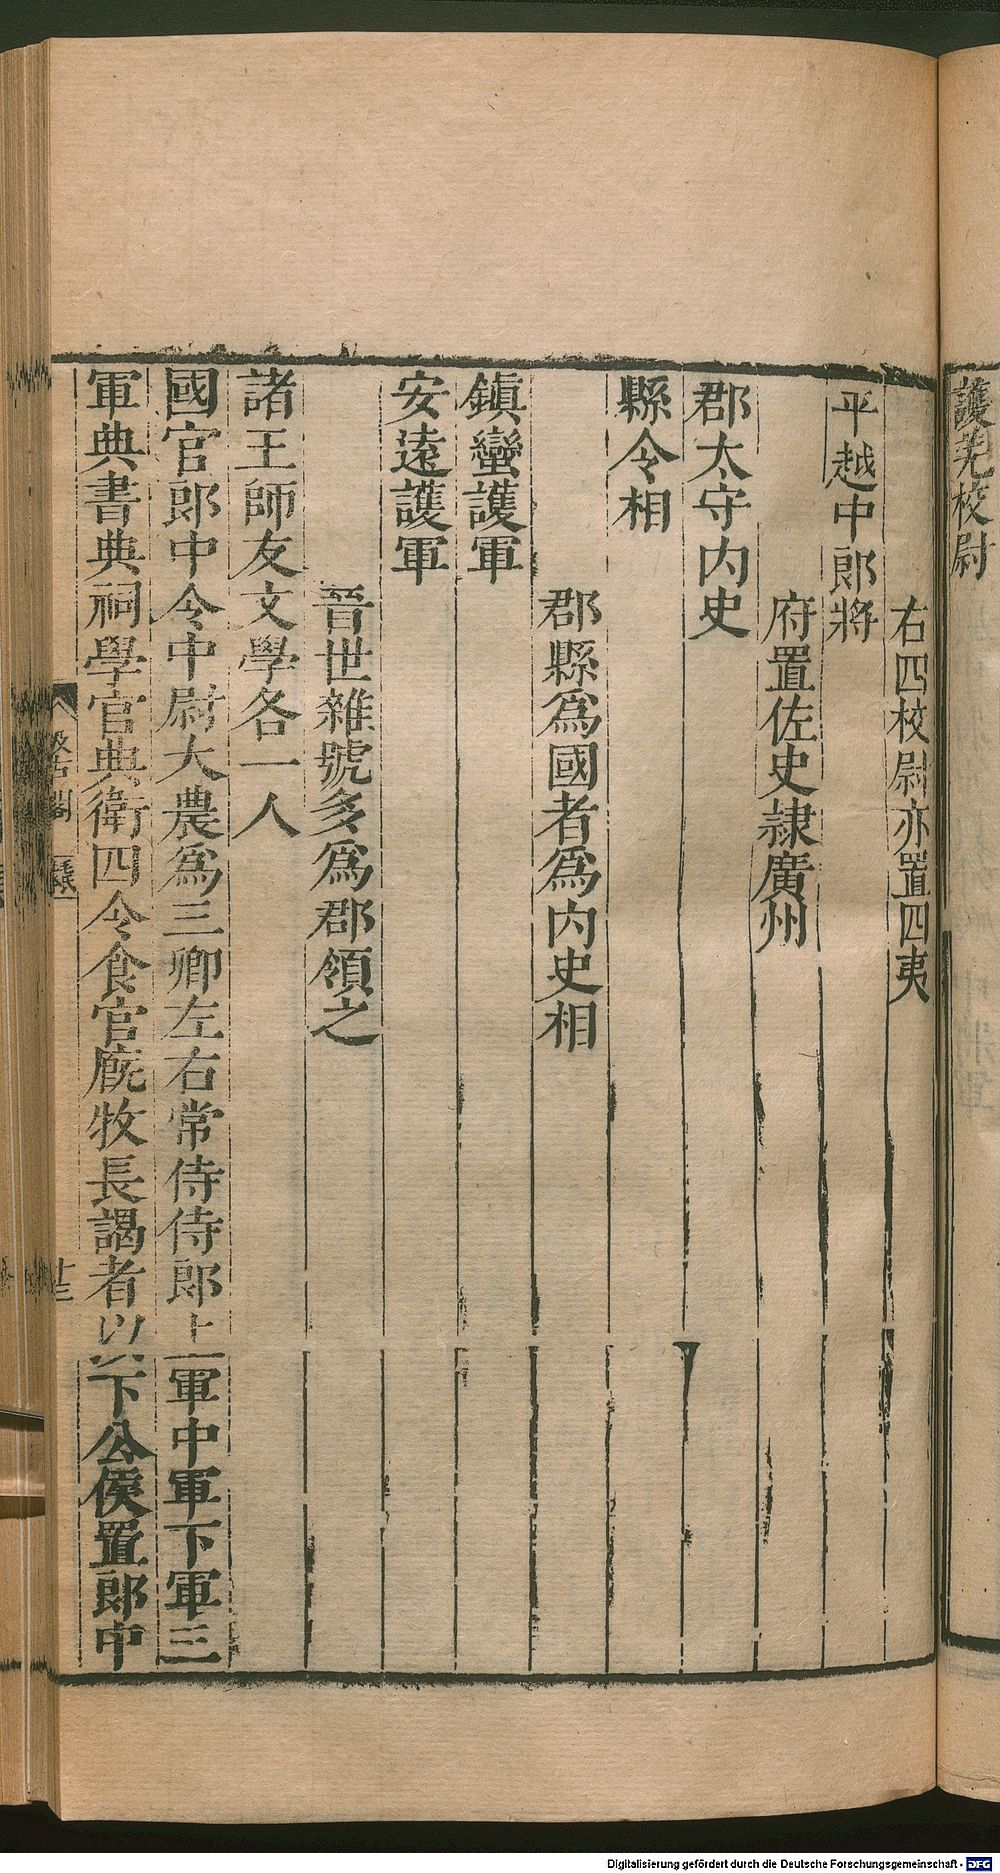 護羌校尉
右四校尉亦置四夷
平越中郎將
府置佐史隷廣州
郡太守内史
縣令相
郡縣爲國者爲内史相
鎮蠻護軍
安遠護軍
晉世雜號多爲郡領之
諸王師友文學各一人
國官郎中令中尉大農爲三卿左右常侍侍郎上軍中軍下軍三
軍典書典祠學官典衛四令食官廐牧長謁者以下公侯置郎中
汲古閣
十三
Digitalisierung gefördert durch die Deutsche Forschungsgemeinschaft - DFG